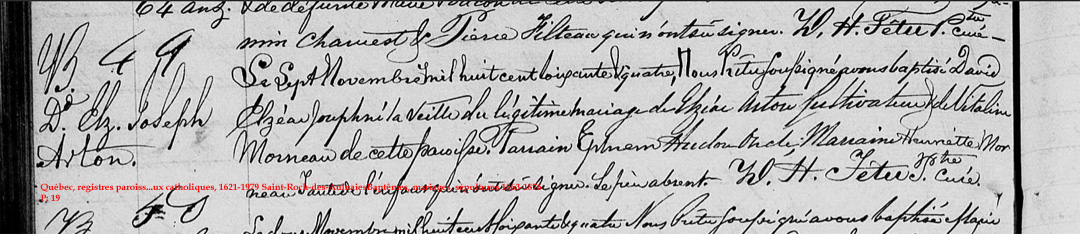 64 ans. & de défunte Marie
min Charrest & Pierre Filteau qui n'ont su signer. W. H. Têtu Ptre Curé
B. 49
D. Elz. Joseph
Arton.
Le Sept Novembre mil huit cent soixante & quatre, Nous Prêtre soussigné avons baptisé David
Elzéar Joseph né la veille du légitime mariage de Elzéar Arton Cultivateur & de Vitaline
Morneau de cette paroisse. Parrain Hudon Oncle, Marraine Henriette Mor
neau Tante de l'enfant qui n'ont su signer. Le père absent. W. H. Têtu Ptre Curé.
Québec, registres paroiss...ux catholiques, 1621-1979 Saint-Roch-des-Aulnaies Baptêmes, mariages, sépultures
P. 19
B. 50
Le Novembre mil huit cent soixante & quatre Nous Prêtre soussigné avons baptisé Marie